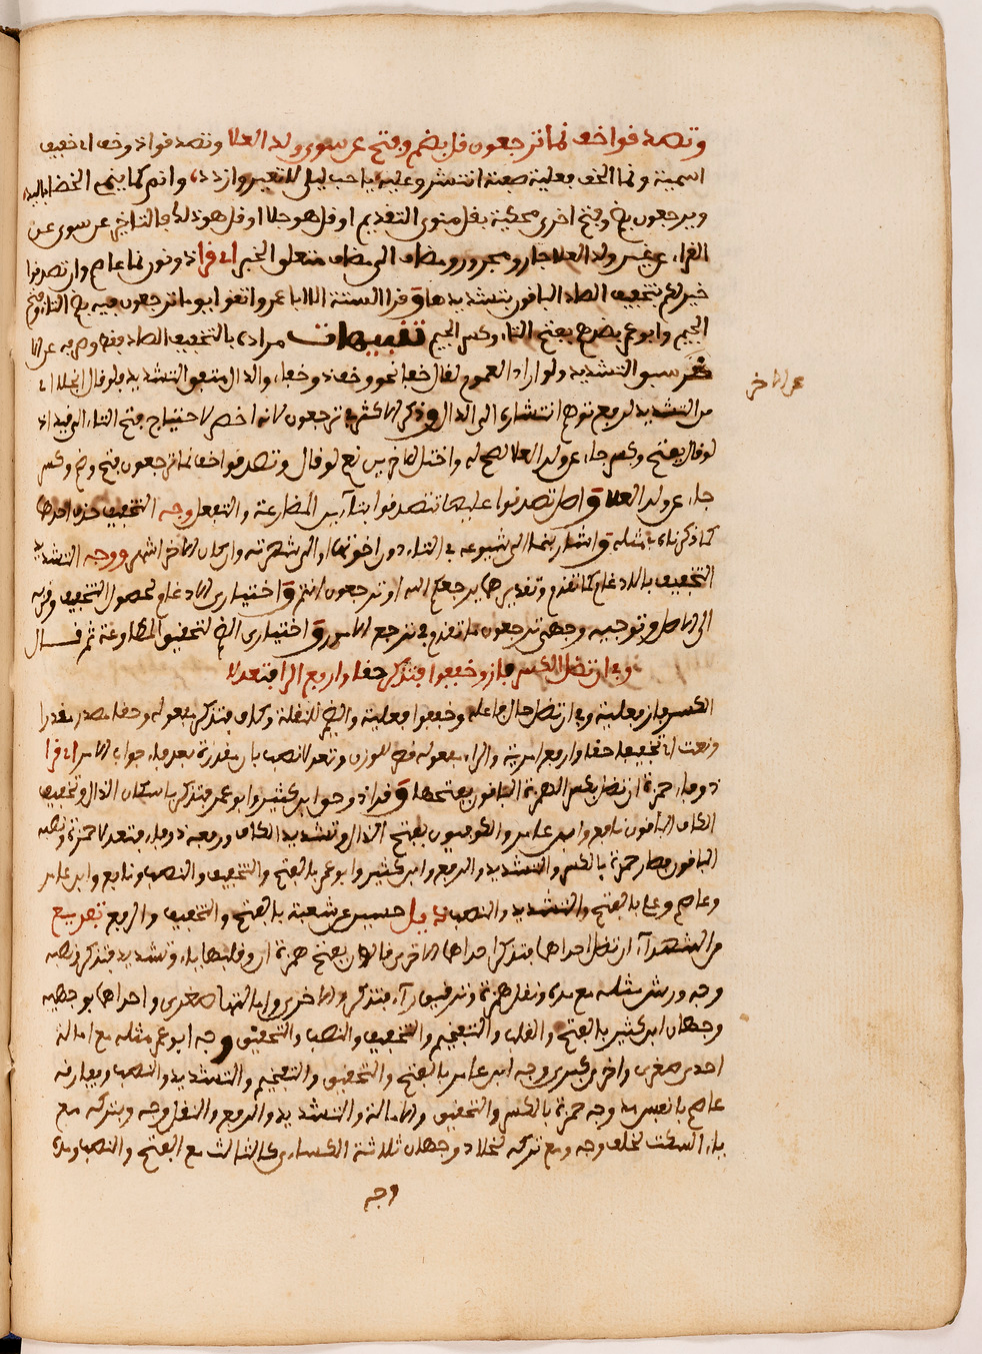 وتصدقوا خف نما ترجعون قل بضم وفتح عن سوى ولد العلا وتصدقوا ذو خف اي خفيف
اسمية ونما الخف فعلية صفة انتشر وعليه يا حب ليلى للتغير وازدد، وانم كما ينمي الخضاب باليد
ويرجعون بضم وفتح اخرى محكية بقل منوى التقديم او قل هو حلا او قل هو ذلك فالتاخير عن سوى عن
القراء عن غير ولد العلا جار ومجرور ومضاف الى مضاف متعلق الخبر اي قرا ذو نون نما عاصم وان تصدقوا
خير لكم بتخفيف الصاد الباقون بتشديدها وقرا الستة الا ابا عمرو اتقوا يوما ترجعون فيه بضم التاء وفتح
الجيم وابو عمرو بفتح التاء وكسر الجيم تنبيهات مراده بالتخفيف الصاد فقط
سبق التشديد ولو اراد العموم لقال خفا نحو وخف ذو خفا، والدال متفق التشديد فلو قال
عن الاخر
من التشديد لدفع توهم انتشاره الى الدال وذكر الاكثر في ترجعون لانه اخصر لاحتياج فتح التاء الى قيد اذ
لو قال بفتح وكسر جاء عن ولد العلا لصح له واختل للاخرين نعم لو قال وتصدقوا خف نما ترجعون فتح وضم وكسر
جاء عن ولد العلا واصل تصدقوا عليهما تتصدقوا بتاءين المضارعة والتفعل وجه التخفيف حذف احداهما
كما ذكرناه في مثله واشار بنما الى شيوعه في التاء دون اخوتها او الى شهرته وان كان الاخر اشهر ووجه التشديد
التخفيف بالادغام كما تقدم وتقديرهما يرجعكم الله او ترجعون انتم واختياري الادغام لحصول التخفيف وقربه
الى الاصل وتوجيه وجهي ترجعون ما تقدم في ترجع الامور واختياري الضم لتحقيق المطاوعة ثم قال
وفي ان تضل الكسر فاز وخففوا فتذكر حقا وارفع الرا فتعدلا
الكسر فاز فعلية وفي ان تضل حال فاعله وخففوا فعلية والضم للنقلة وكاف فتذكر مفعوله وحقا مصدر مقدرا
ونعت اي تخفيفا حقا وارفع امرية والراء مفعوله قصر للوزن وتعدلا نصب بان مقدرة بعد فاء جواب الامر اي قرا
ذو فاء حمزة ان تضل بكسر الهمزة الباقون بفتحها وقرا ذو حق ابن كثير وابو عمرو فتذكر باسكان الذال وتخفيف
الكاف الباقون نافع وابن عامر والكوفيون بفتح الذال وتشديد الكاف ورفعه ذو فاء فتعدلا حمزة ونصبه
الباقون فصار حمزة بالكسر والتشديد والرفع وابن كثير وابو عمرو بالفتح والتخفيف والنصب ونافع وابن عامر
وعاصم وعلي بالفتح والتشديد والنصب ذيل حسين عن شعبة بالفتح والتخفيف والرفع تفريع
من الشهداء ان تضل احداهما فتذكر احداهما الاخرى قالون بفتح همزة ان وقلبها ياء وتشديد فتذكر ونصبه
وجه ورش مثله مع مده ونقل همزة وترقيق راء فتذكر والاخرى وامالتها صغرى واحداهما بوجهيه
وجهان ابن كثير بالفتح والقلب والتفخيم والتخفيف والنصب والتحقيق وجه ابو عمرو مثله مع امالة
احدى صغرى واخرى كبرى وجه ابن عامر بالفتح والتحقيق والتفخيم والتشديد والنصب ويعارفه
عاصم بالقصر مد وجه حمزة بالكسر والتحقيق والامالة والتشديد والرفع والنقل وجه وبتركه مع
ياء السكت لخلف وجه ومع تركه لخلاد وجهان ثلاثة الكسائي كالثالث مع الفتح والنصب ومده
وجه